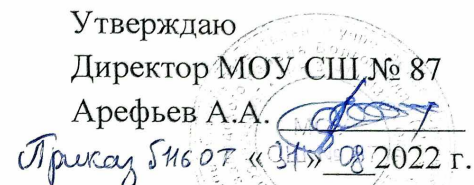 Утверждаю
Директор МОУ СШ № 87
Арефьев А.А.
Приказ 5116 от «31» 08 2022 г.